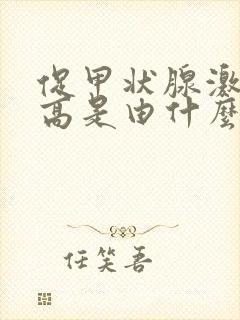 促甲状腺激
高是由什麼
任笑吾